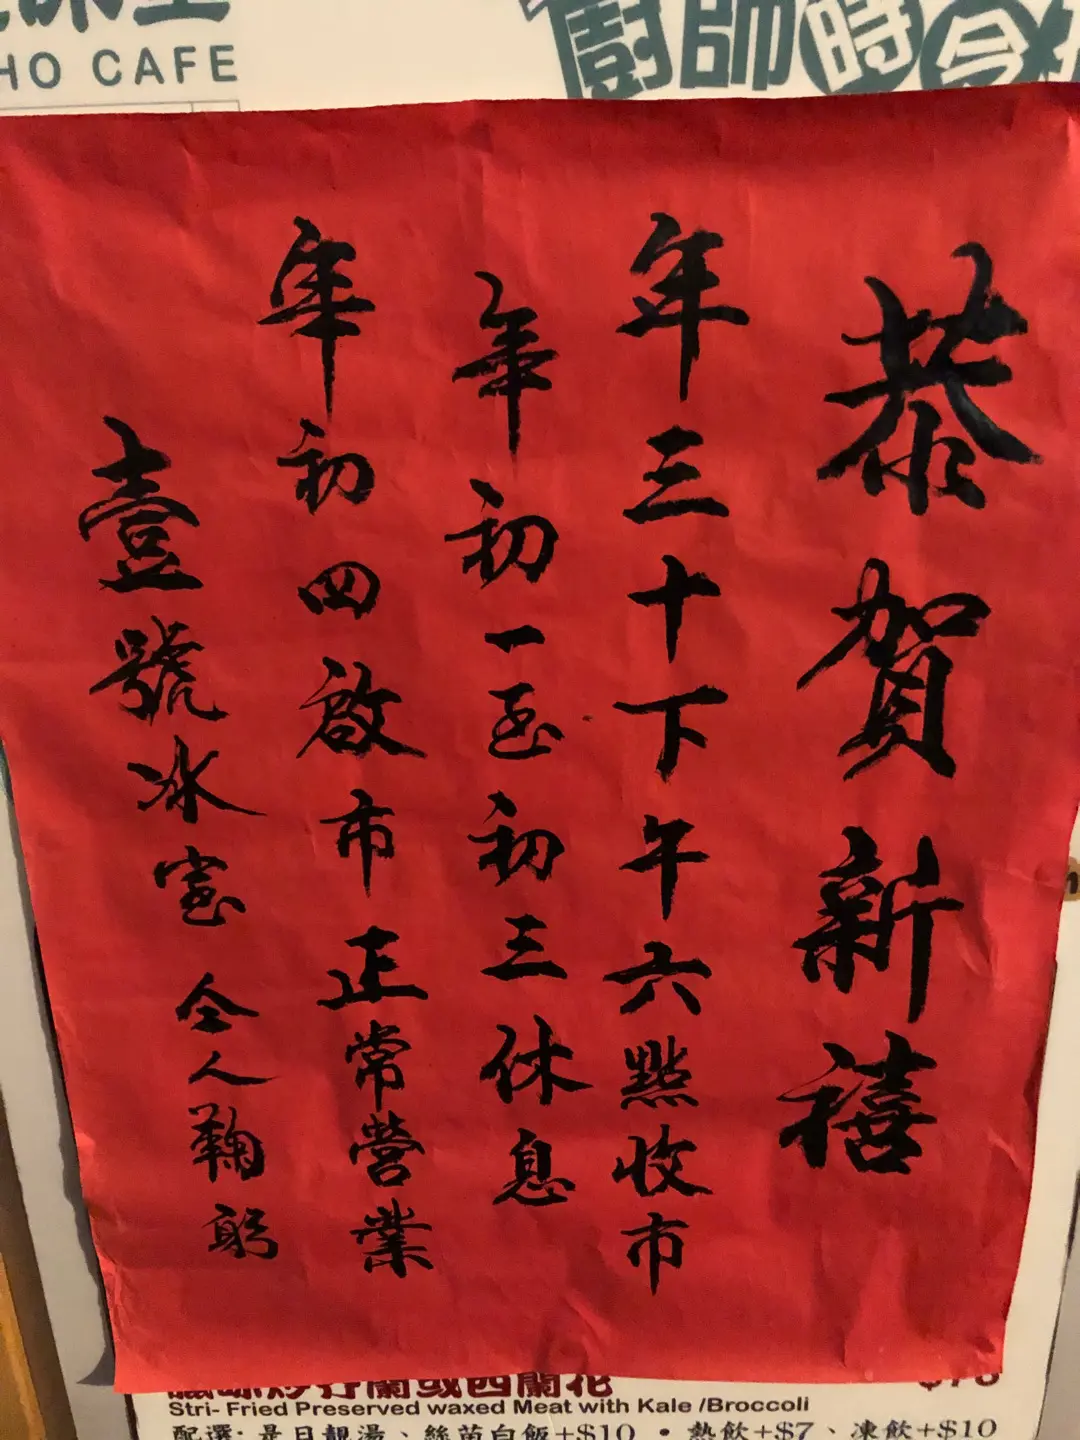 HO CAFE
廚師時令
恭賀新禧
年三十下午六點收市
年初一至初三休息
年初四啟市正常營業
壹號冰室 仝人鞠躬
$78
Stri- Fried Preserved waxed Meat with Kale /Broccoli
配選: 是日靚湯、絲苗白飯+$10 • 熱飲+$7、凍飲+$10